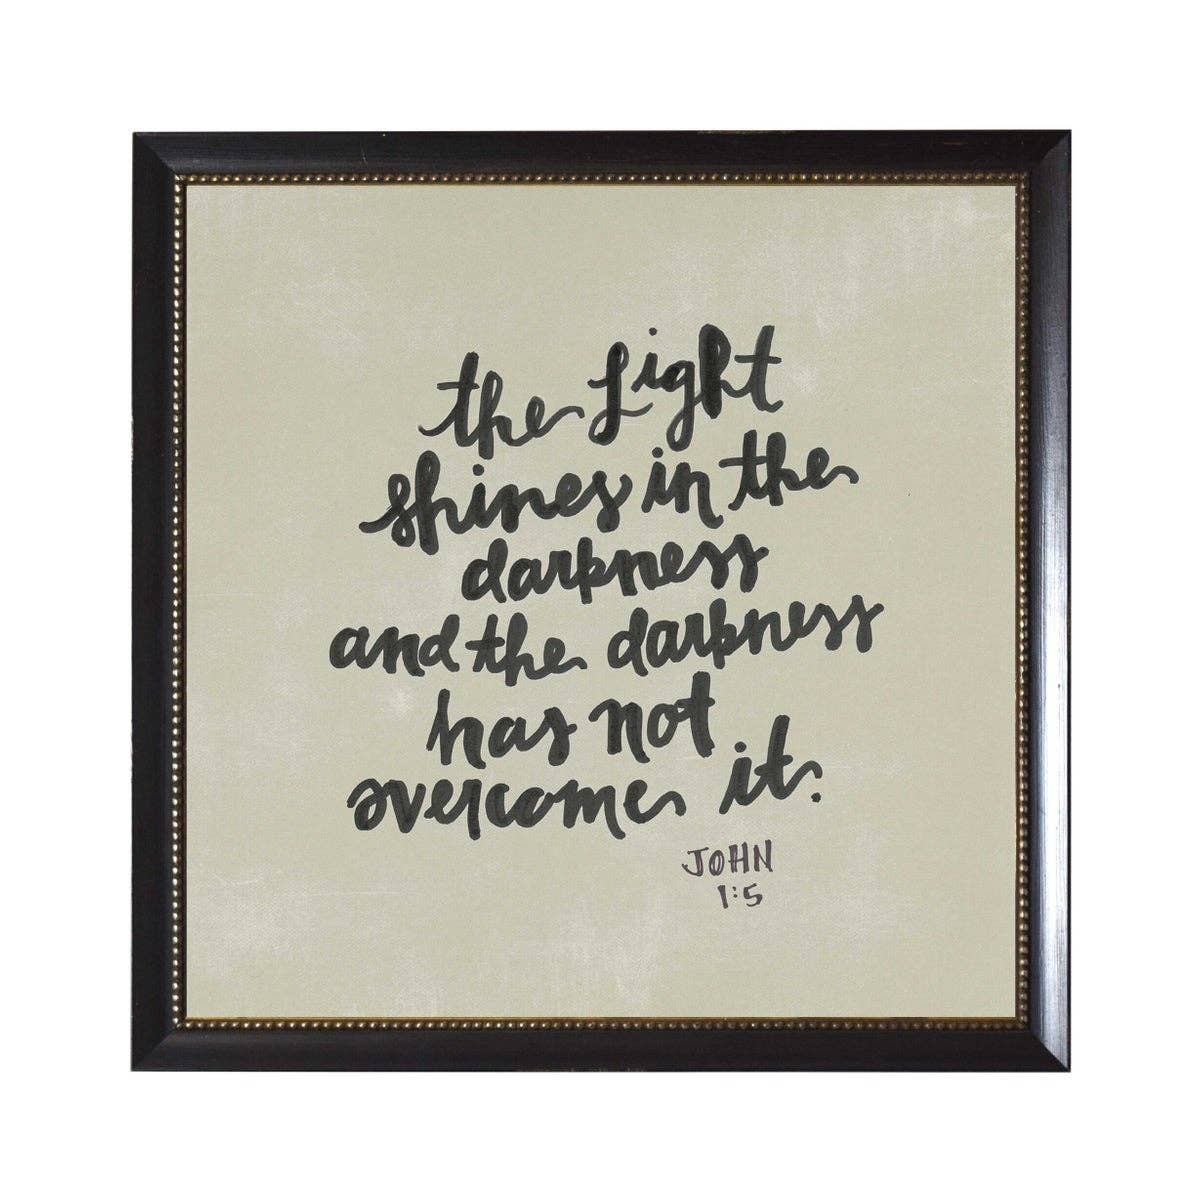 the Light
shines in the
darkness
and the darkness
has not
overcome it.
JOHN
1:5